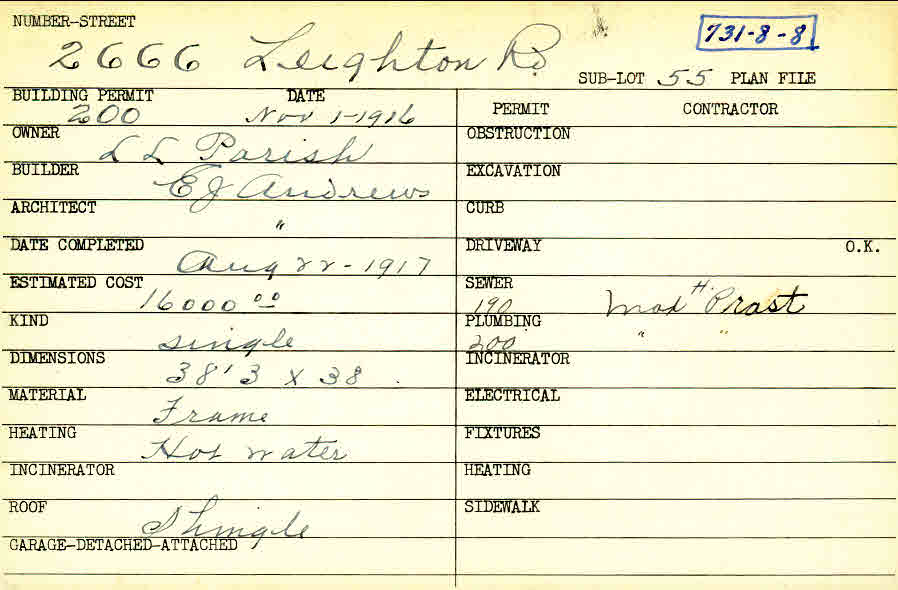 NUMBER-STREET
2666 Leighton Rd.
731-8-8
SUB-LOT 55 PLAN FILE
BUILDING PERMIT DATE
200 Nov 1-1916
PERMIT CONTRACTOR
OWNER L L Parish
OBSTRUCTION
BUILDER E J Andrews
EXCAVATION
ARCHITECT "
CURB
DATE COMPLETED Aug 22-1917
DRIVEWAY O.K.
ESTIMATED COST 16000 00
SEWER
190 Max H. Prast
KIND single
PLUMBING
200 " "
DIMENSIONS 38'3 x 38
INCINERATOR
MATERIAL Frame
ELECTRICAL
HEATING Hot water
FIXTURES
INCINERATOR
HEATING
ROOF Shingle
SIDEWALK
GARAGE-DETACHED-ATTACHED